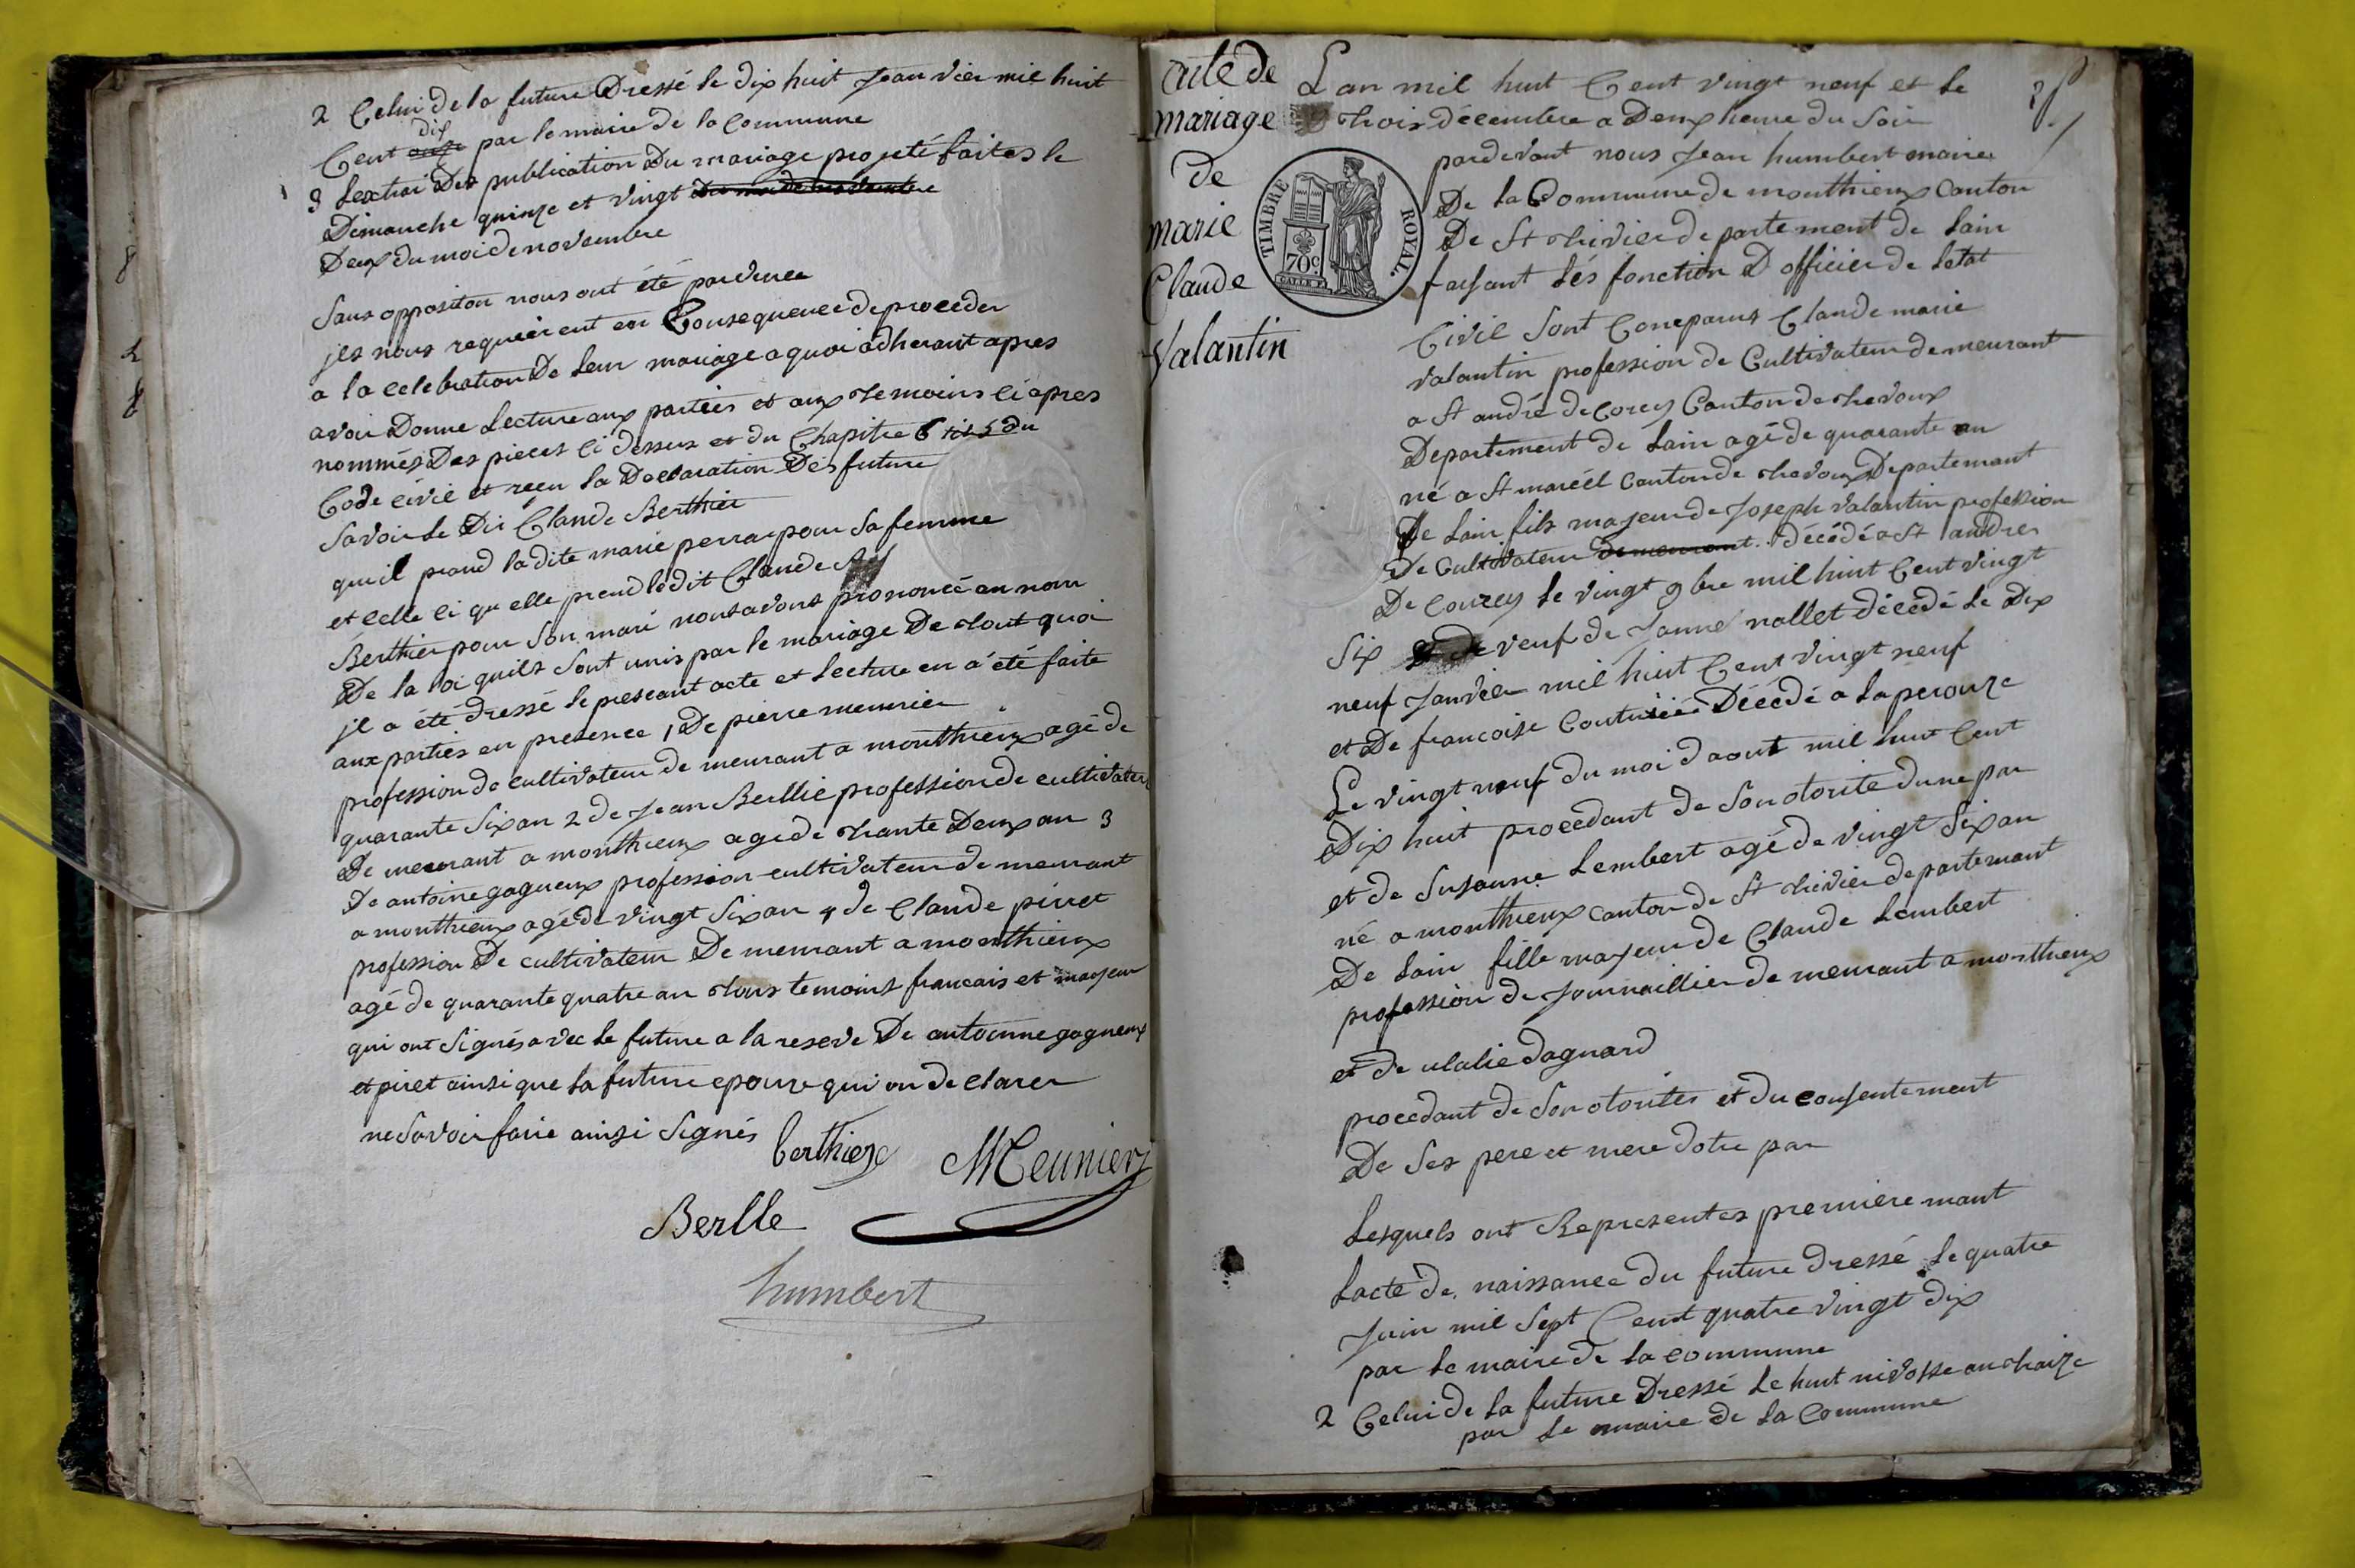 2 Celui de la future Dressé le dix huit Jean vier mil huit
dix
Cent onze par le maire de la Commune
3 Lextrai Des publication Du mariage projeté faites le
Dimanche quinze et vingt Du moi de novembre
Deux du moi de novembre
Sans oppositon nous ont été pardevee
jls nous requierent en Consequence de proceder
a la celebration De leur mariage a quoi adherant apres
avoir Donne Lecture aux parties et aux temoins ci apres
nommés Des pieces ci dessus et du Chapitre 6 tit 5 du
Code civil et reçu la Declaration Des future
Savoir Le Dit Claude Berthier
quil prand la dite marie perra pour sa femme
et celle ci qu elle prend le dit Claude
Berthier pour son mari nous avons prononcé au nom
De la loi quils sont unis par le mariage De tout quoi
jl a été dressé le preseant acte et lecture en a été faite
aux parties en presence 1 De pierre meunier
profession de cultivateur de meurant a monthieux agé de
quarante six an 2 de Jean Berllie profession de cultivateur
De meurant a monthieux agé de trante Deux an 3
De antoine gagneux profession cultivateur de meurant
a monthieux agé de vingt six an 4 de Claude piret
profession De cultivateur De meurant a monthieux
agé de quarante quatre an tous temoins francais et mayeur
qui ont signés avec le future a la reserve De antoinne gagneux
et piret ainsi que la future epouze qui on de clarer
ne savoir faire ainsi signés
berthier Meunier
Berlle
humbert
acte de
mariage
de
marie
Claude
Valantin
TIMBRE ROYAL
70c
Lan mil huit Cent vingt neuf et le
trois décembre a Deux heure du soir
pardevant nous Jean humbert maire
De la Commune de monthieux Canton
De St trivier departement de Lain
faisant Lés fonction D officier de letat
Civil sont Comparus Claude marie
valantin profession de Cultivateur demeurant
a St andré de Corcy Canton de trevoux
Departement de Lain agé de quarante an
né a St marcél Canton de trevoux Departemant
De Lain fils mayeur de Joseph valantin profession
De Cultivateur demeurant décédé a St andre
De Courcy le vingt 9 bre mil huit Cent vingt
Six veuf de Janne nallet décédé le Dix
neuf Janvier mil huit Cent vingt neuf
et De francoise Couturiée Décédé a Laperouze
Le vingt neuf du moi daout mil huit Cent
Dix huit procedant de son otorite dune par
et de Susanne Lembert agé de vingt Six an
né a monthieux canton de St trivier departemant
De Lain fille mayeur de Claude Lembert
profession de Journaillier de meurant a monthieux
et de ulalie dagnard
procedant de son otorites et du consentemant
De ses pere et mere dotre par
Lesquels ont Representes premiere mant
Lacte de naissance du future dressé le quatre
Juin mil Sept Cent quatre vingt dix
par le maire de la commune
2 Celui de la future Dressé le huit nivosse an traize
par le maire de la Commune